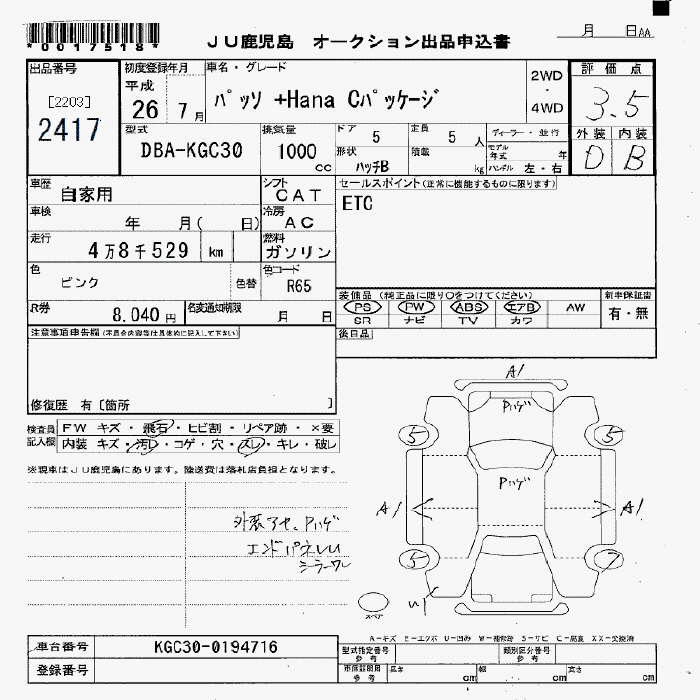 *0017518*
JU鹿児島 オークション出品申込書
月 日AA
出品番号
[2203]
2417
初度登録年月
平成
26 7月
車名・グレード
パッソ +Hana Cパッケージ
2WD
・
4WD
評価点
3.5
外装 内装
D B
型式
DBA-KGC30
排気量
1000
cc
ドア 5
定員 5 人
ディーラー・並行
形状
ハッチB
積載 kg
モデル年式 年
ハンドル 左・右
車歴
自家用
シフト
CAT
セールスポイント(正常に機能するものに限ります)
ETC
車検
年 月( 日)
冷房
AC
走行
4万8千529 km
燃料
ガソリン
色
ピンク
色替
色コード
R65
R券
8.040円
名変通知期限
月 日
装備品(純正品に限り○をつけてください)
PS PW ABS エアB AW
SR ナビ TV カワ
新車保証書
有・無
注意事項申告欄(不具合内容等は具体的に記入して下さい)
後日品
修復歴 有〔箇所 〕
検査員記入欄
FW キズ・飛石・ヒビ割・リペア跡・×要
内装 キズ・汚レ・コゲ・穴・スレ・キレ・破レ
※現車はJU鹿児島にあります。陸送費は落札店負担となります。
外装アセ、Pハゲ
エンドパネルU
シーラーワレ
A1
Pハゲ
5 5
Pハゲ
A1 A1
5 7
U1
スペア
A-キズ E-エクボ U-凹み W-補修跡 S-サビ C-腐食 XX-交換済
車台番号
KGC30-0194716
型式指定番号
参考
類別区分番号
参考
登録番号
車庫証明用
参考
長さ cm
幅 cm
高さ cm